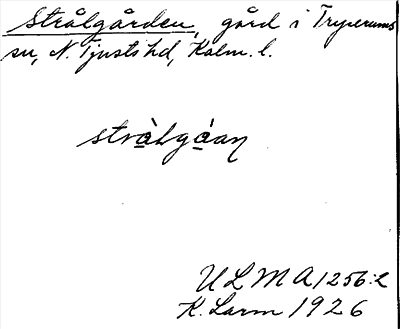 Strålgården, gård i Tryserums
sn, N. Tjusts hd, Kalm. l.
stràlgáan
ULMA 1256:2
K. Larm 1926